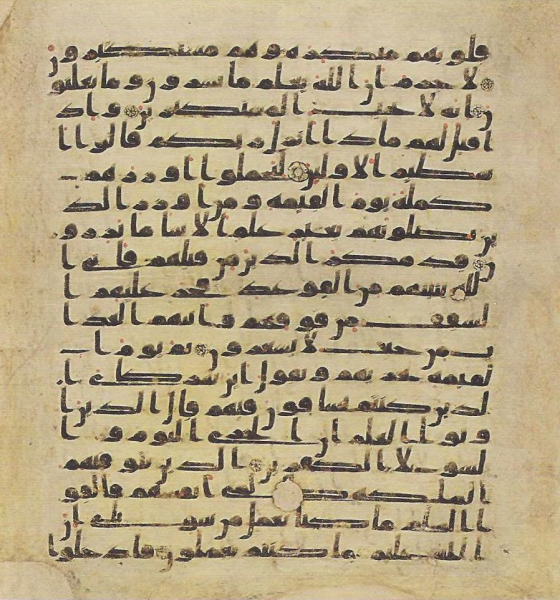 قلوبهم منكرة وهم مستكبرون
لا جرم ان الله يعلم ما يسرون وما يعلنو
ن انه لا يحب المستكبرين واذ
ا قيل لهم ماذا انزل ربكم قالوا ا
سطير الاولين ليحملوا اوزرهم
كملة يوم القيمة ومن اوزار الذ
ين يضلونهم بغير علم الا سا ما يزرو
ن قد مكر الذين من قبلهم فاتى ا
لله بنينهم من القوعد فخر عليهم ا
لسقف من فوقهم واتيهم العذا
ب من حيث لا يشعرون ثم يوم ا
لقيمة يخزيهم ويقول اين شركاى ا
لذين كنتم تشقون فيهم قال الذين ا
وتوا العلم ان الخزى اليوم وا
لسو على الكفرين الذين تتوفيهم
الملئكة ظلمى انفسهم فالقو
ا السلم ما كنا نعمل من سو بلى ان
الله عليم بما كنتم تعملون فادخلوا